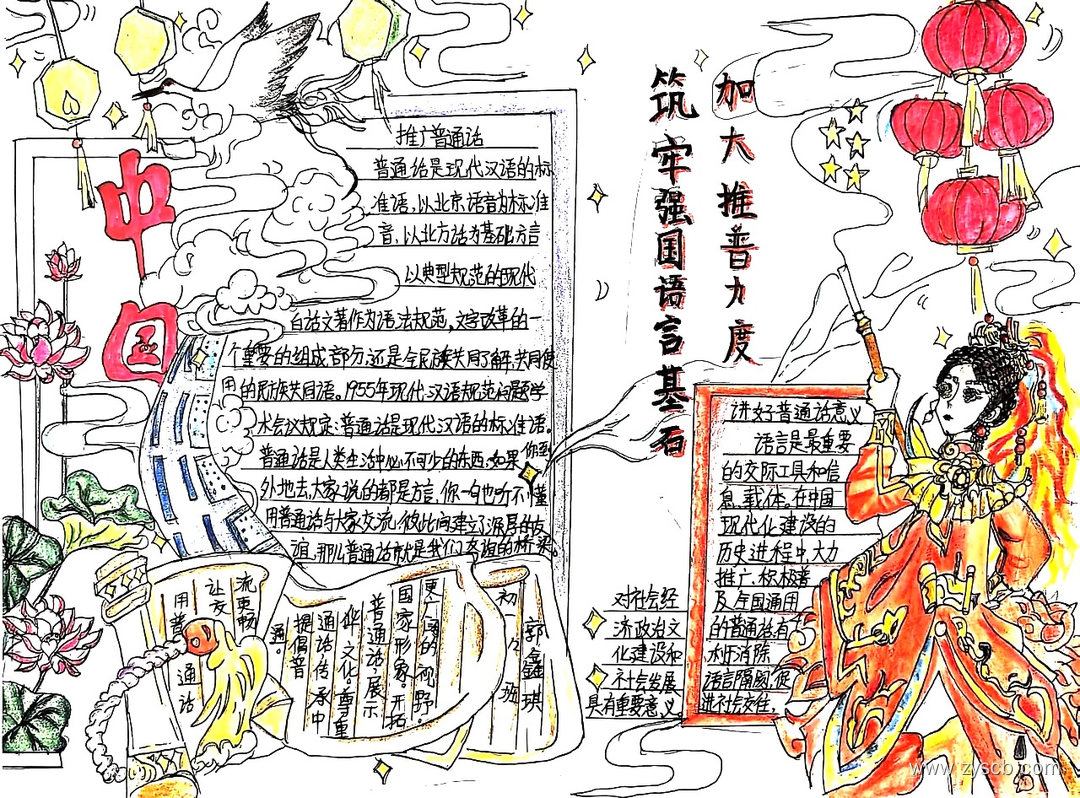 加大推普力度
筑牢强国语言基石
中国
推广普通话
普通话是现代汉语的标
准语,以北京语音为标准
音,以北方话为基础方言
以典型规范的现代
白话文著作为语法规范,文字改革的一
个重要的组成部分,还是全民族共同了解,共同使
用的民族共同语。1955年现代汉语规范问题学
术会议规定:普通话是现代汉语的标准语。
普通话是人类生活中必不可少的东西,如果你到
外地去,大家说的都是方言,你一句也听不懂
用普通话与大家交流,彼此间建立深厚的友
谊,那么普通话就是我们友谊的桥梁。
讲好普通话意义
语言是最重要
的交际工具和信
息载体。在中国
现代化建设的
历史进程中,大力
推广、积极普
及全国通用
的普通话,有
利于消除
语言隔阂,促
进社会交往,
对社会经
济政治文
化建设和
社会发展
具有重要意义
用普通话
让交
流更畅
通。
提倡普
通话传承中
华文化尊重
普通话展示
国家形象。开拓
更广阔的视野。
初一 班
郭鑫琪
www.zyscb.com